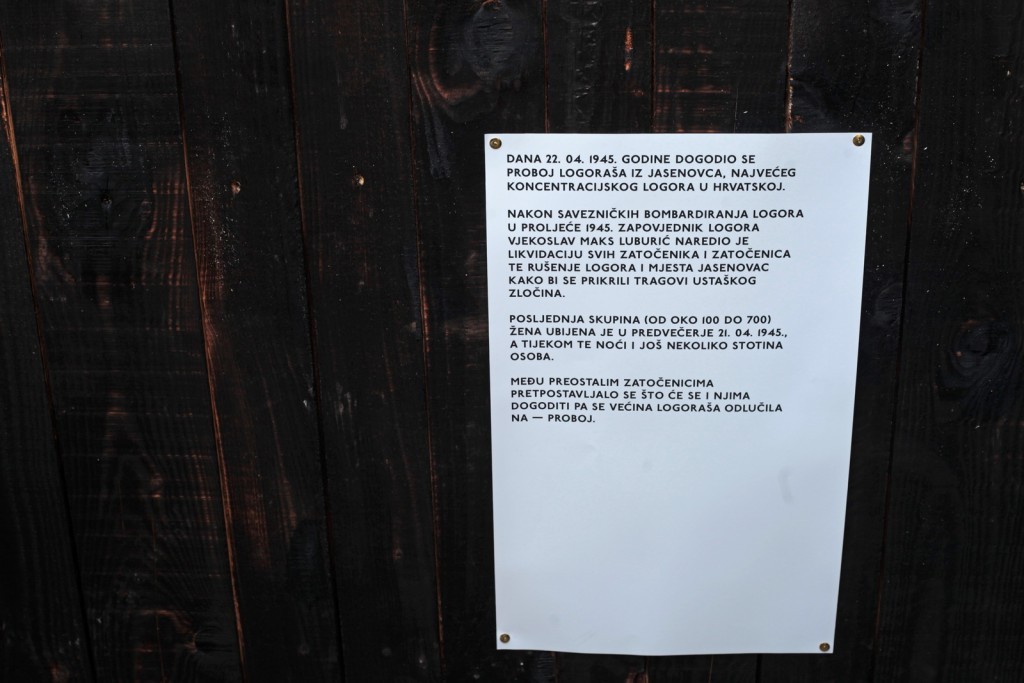 DANA 22. 04. 1945. GODINE DOGODIO SE
PROBOJ LOGORAŠA IZ JASENOVCA, NAJVEĆEG
KONCENTRACIJSKOG LOGORA U HRVATSKOJ.
NAKON SAVEZNIČKIH BOMBARDIRANJA LOGORA
U PROLJEĆE 1945. ZAPOVJEDNIK LOGORA
VJEKOSLAV MAKS LUBURIĆ NAREDIO JE
LIKVIDACIJU SVIH ZATOČENIKA I ZATOČENICA
TE RUŠENJE LOGORA I MJESTA JASENOVAC
KAKO BI SE PRIKRILI TRAGOVI USTAŠKOG
ZLOČINA.
POSLJEDNJA SKUPINA (OD OKO 100 DO 700)
ŽENA UBIJENA JE U PREDVEČERJE 21. 04. 1945.,
A TIJEKOM TE NOĆI I JOŠ NEKOLIKO STOTINA
OSOBA.
MEĐU PREOSTALIM ZATOČENICIMA
PRETPOSTAVLJALO SE ŠTO ĆE SE I NJIMA
DOGODITI PA SE VEĆINA LOGORAŠA ODLUČILA
NA — PROBOJ.